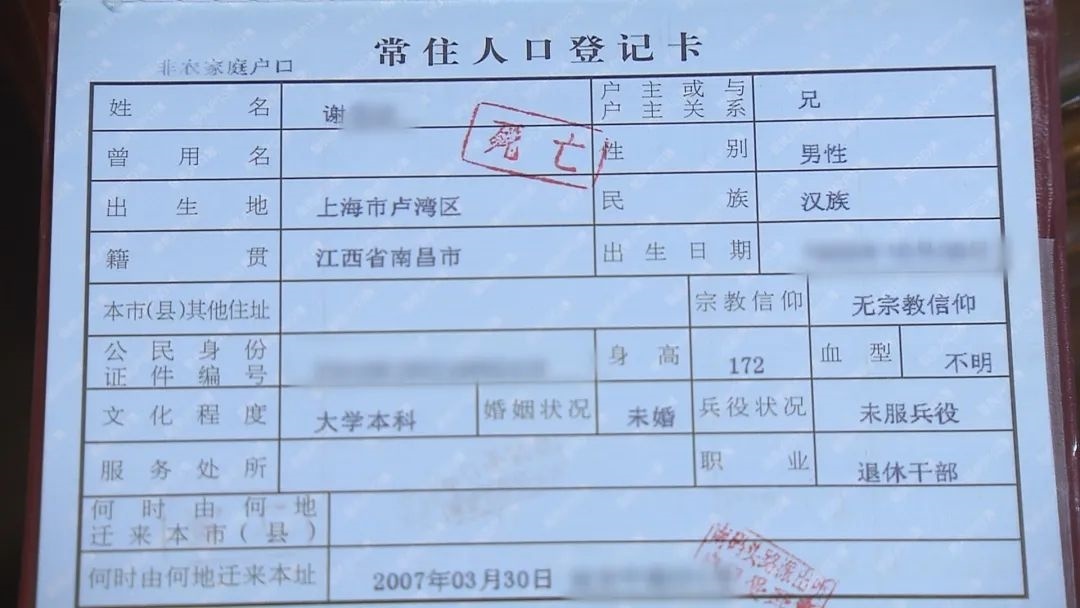 常住人口登记卡
非农家庭户口
姓名 谢 户主或与
户主关系 兄
死亡
曾用名 性别 男性
出生地 上海市卢湾区 民族 汉族
籍贯 江西省南昌市 出生日期
本市(县)其他住址 宗教信仰 无宗教信仰
公民身份
证件编号 身高 172 血型 不明
文化程度 大学本科 婚姻状况 未婚 兵役状况 未服兵役
服务处所 职业 退休干部
何时由何地
迁来本市(县)
何时由何地迁来本址 2007年03月30日